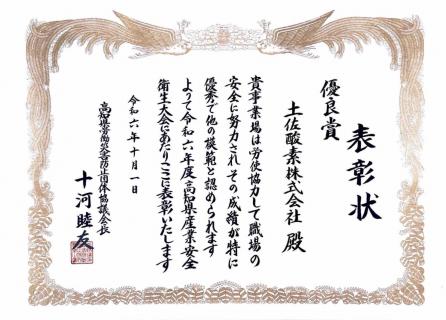 表彰状
優良賞
土佐酸素株式会社 殿
貴事業場は労使協力して職場の
安全に努力されその成績が特に
優秀で他の模範と認められます
よって令和六年度高知県産業安全
衛生大会にあたりここに表彰いたします
令和六年十月一日
高知県労働災害防止団体協議会長
十河睦友